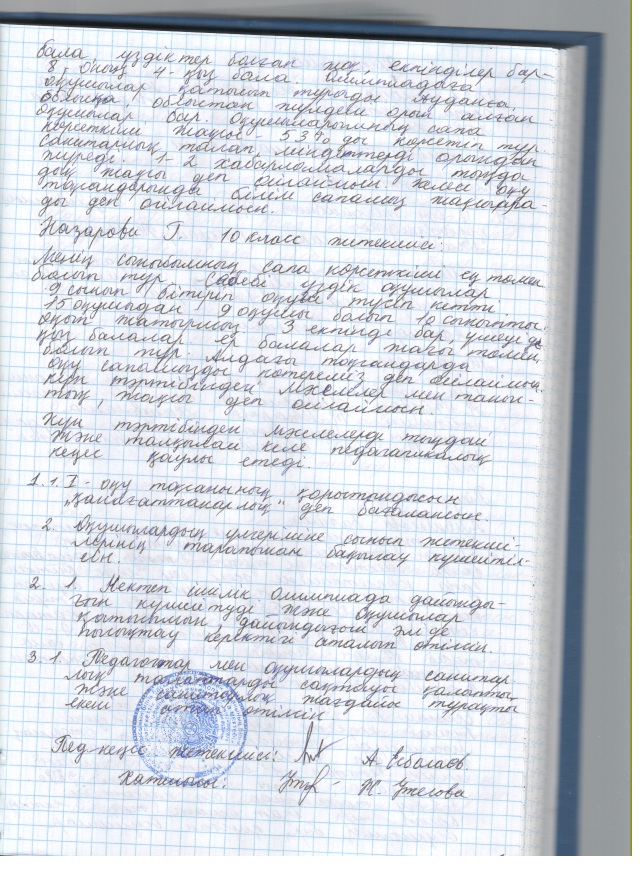 бала, үздіктер болған жоқ, екпінділер бар-
8, оның 4-қыз бала. Олимпиадаға
оқушылар қатысып тұрады. Ауданға,
облысқа, облыстан жүлделі орын алған
оқушылар бар. Оқушыларымның сапа
көрсеткіші жақсы 53% ды көрсетіп тұр.
Санитарлық талап, міндеттерді орындап
жүреді. 1-2 хабарламаларды тыңда
дық жақсы деп ойлаймын. Келесі оқу
тоқсандарында білім сапамыз жақсара-
ды деп ойлаймын.
Назарова Г. 10 класс жетекшісі:
Менің сыныбымның сапа көрсеткіші ең төмен
болып тұр. Себебі үздік оқушылар
9 сынып бітіріп оқуға түсіп кетті.
15 оқушыдан 9 оқушы болып 10 сыныпты
оқып жатырмыз. 3 екпінді бар, үшеуі де
қыз балалар, ер балалар жағы төмен
болып тұр. Алдағы тоқсандарда
оқу сапамызды көтереміз деп ойлаймын.
Күн тәртібіндегі мәселелер мен таныс-
тық, жақсы деп ойлаймын.
Күн тәртібінден мәселелерді тыңдай
және талқылай келе педагогикалық
кеңес қаулы етеді.
1. 1. I - оқу тоқсанының қорытындысын
„қанағаттанарлық" деп бағалансын.
2. Оқушылардың үлгеріміне сынып жетекші-
лерінің тарапынан бақылау күшейтіл-
сін.
2. 1. Мектеп ішілік олимпиада дайынды-
ғын күшейтуде және оқушылар
қатысымын дайындығын әлі де
пысықтау керектігі аталып өтілсін.
3. 1. Педагогтар мен оқушылардың санитар
лық талаптарды сақтауы қалыпты
және санитарлық жағдайы тұрақты
екені атап өтілсін.
Пед кеңес жетекшісі: А. Есболаев
Хатшысы: Ж. Утегова